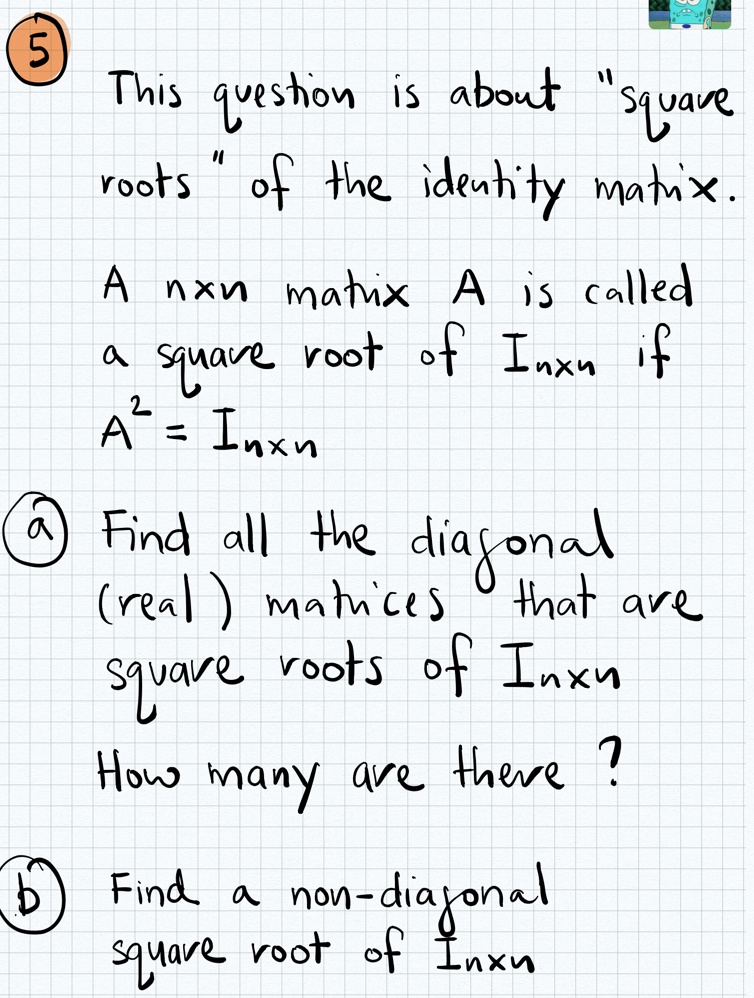 5
This question is about "square
roots" of the identity matrix.
A nxn matrix A is called
a square root of Inxn if
A² = Inxn
a Find all the diagonal
(real) matrices that are
square roots of Inxn
How many are there ?
b Find a non-diagonal
square root of Inxn